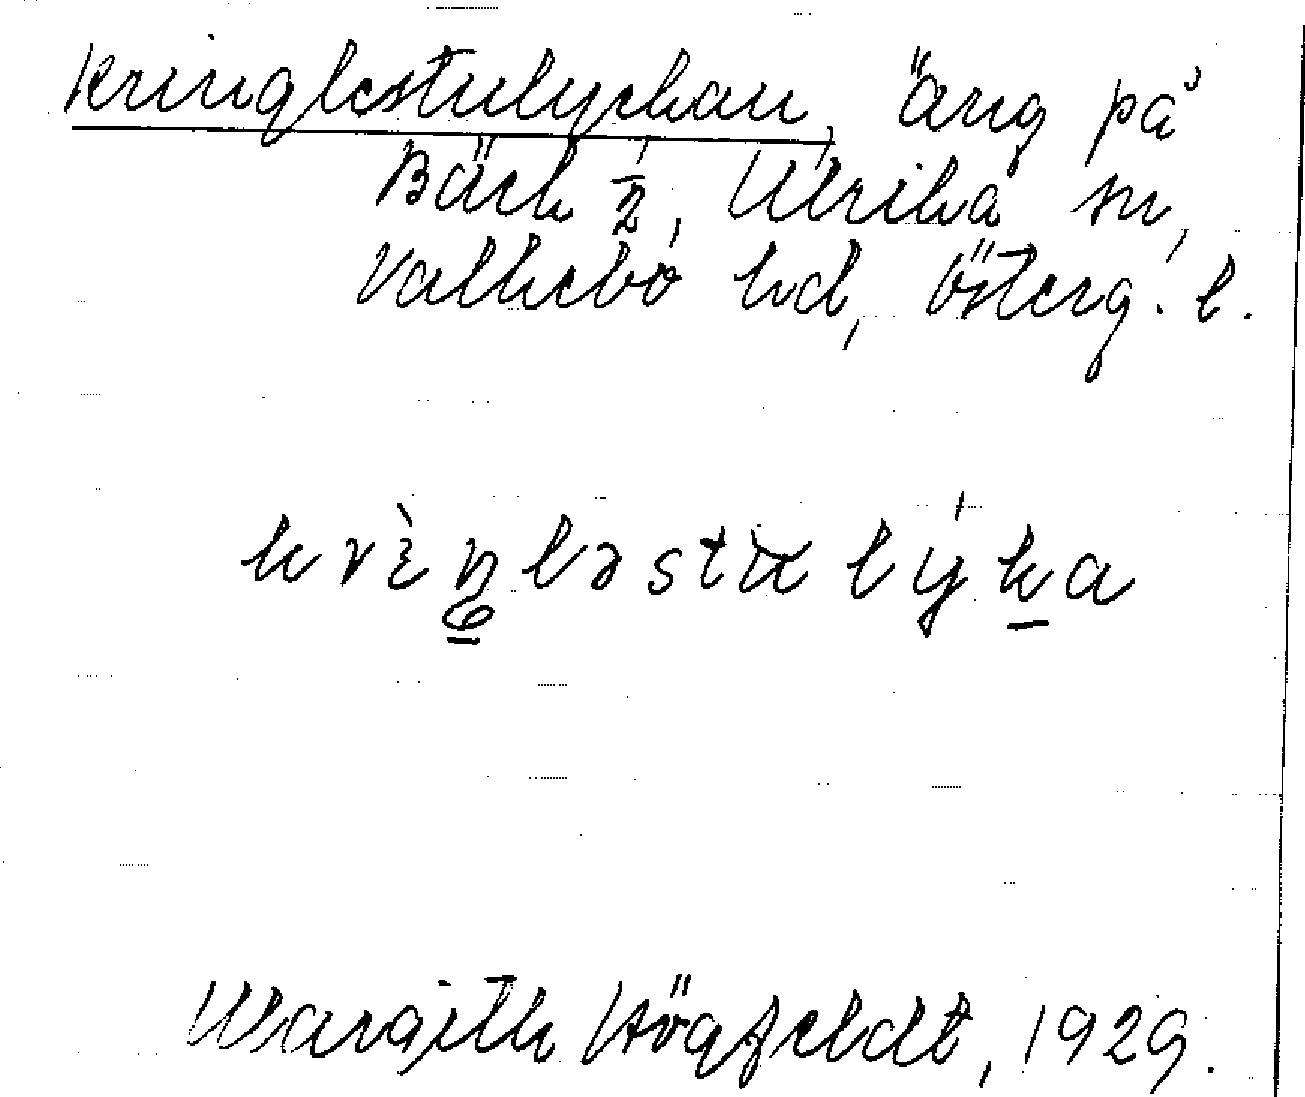 Kringlestulyckan, äng på
Bäck 1/2, Ulrika sn,
Valkebo hd, Österg. l.
krìŋləstulýka
Margith Högfeldt, 1929.